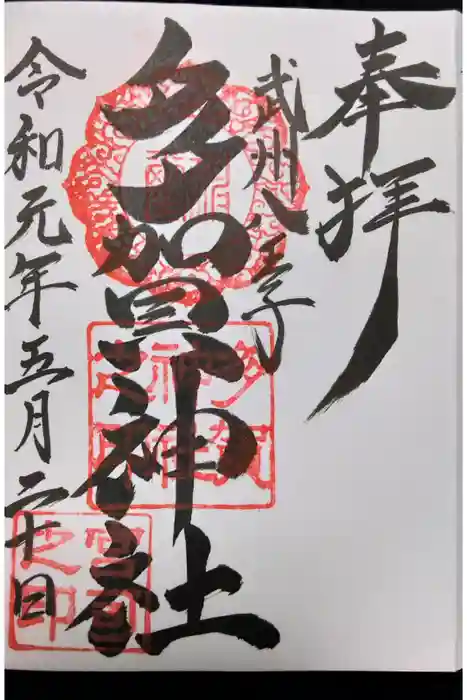 奉拝
武州八王子
多賀神社
令和元年五月二十日
宮司
之印